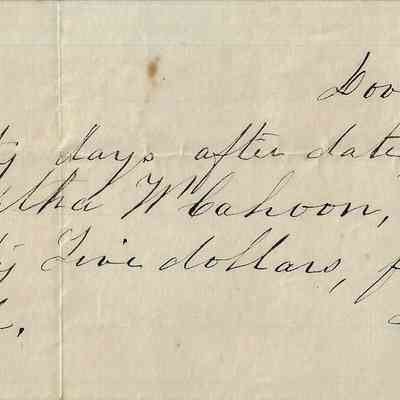 Dov
ty days after date,
tha W Cahoon,
ty Five dollars, f